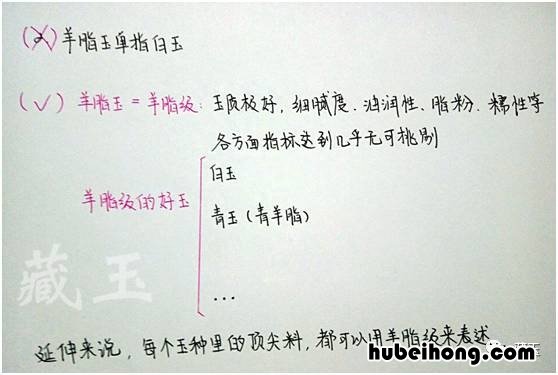 (×) 羊脂玉单指白玉
(✓) 羊脂玉=羊脂级: 玉质极好, 细腻度、油润性、脂粉、糯性等
各方面指标达到几乎无可挑剔
羊脂级的好玉
白玉
青玉(青羊脂)
...
藏玉
延伸来说, 每个玉种里的顶尖料, 都可以用羊脂级来表述
hubeihong.com